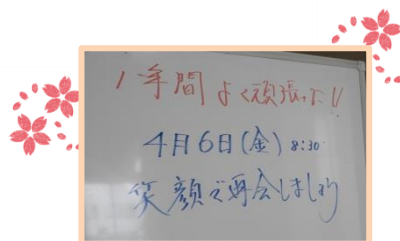 1年間よく頑張った!!
4月6日(金) 8:30
笑顔で再会しましょう